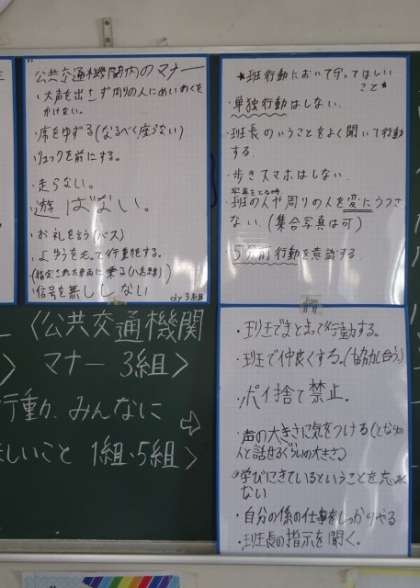 公共交通機関内のマナー
・大声を出さず周りの人にめいわくを
かけない。
・席をゆずる(なるべく座らない)
・リュックを前にする。
・走らない。
遊ばない。
・お礼を言う(バス)
・よゆうをもって行動をする。
・信号を無視しない
by 3組
★班行動において守ってほしい
こと★
・単独行動はしない。
・班長のいうことをよく聞いて行動
する。
・歩きスマホはしない。
写真をとる時、
・班の人や周りの人を変にうつさ
ない。(集合写真は可)
・5分前行動を意識する。
・班でまとまって行動する。
・班で仲良くする。(協力し合う)
・ポイ捨て禁止。
・声の大きさに気をつける(となりの人
と話せるぐらいの大きさ)
・学びにきているということを忘れ
ない
・自分の係の仕事をしっかりやる
・班長の指示を聞く。
〈公共交通機関
〉 マナー 3組〉
行動、みんなに
しいこと 1組・5組〉
⇨